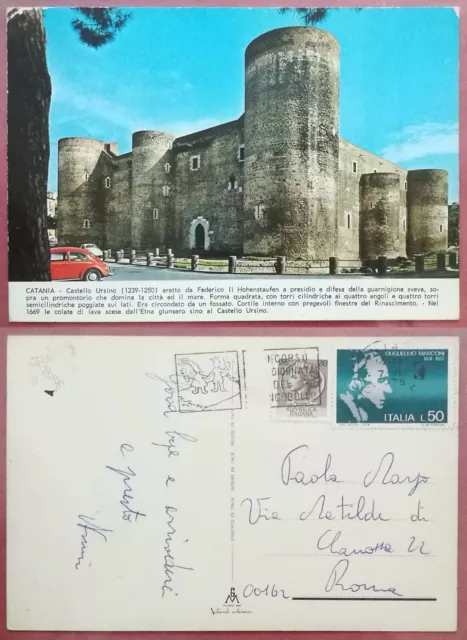 CATANIA - Castello Ursino (1239-1250) eretto da Federico II Hohenstaufen a presidio e difesa della guarnigione sveva, so-
pra un promontorio che domina la città ed il mare. Forma quadrata, con torri cilindriche ai quattro angoli e quattro torri
semicilindriche poggiate sui lati. Era circondato da un fossato. Cortile interno con pregevoli finestre del Rinascimento. - Nel
1669 le colate di lava scese dall'Etna giunsero sino al Castello Ursino.
CONCORSO
GIORNATA
DEL
FRANCOBOLLO
GUGLIELMO MARCONI
1874 1937
ITALIA L.50
good bye e arrivederci
e presto
Paola
Via Matilde di
Canossa 22
00162
Roma